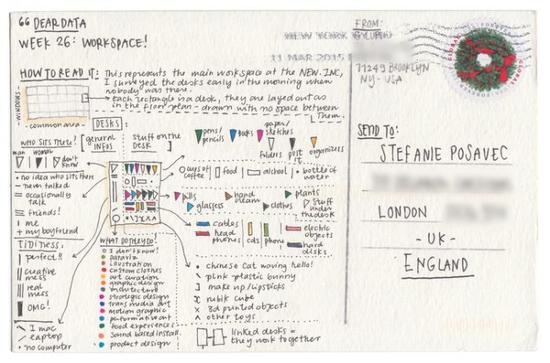 DEAR DATA
WEEK 26: WORKSPACE!
HOW TO READ IT: This represents the main workspace at the NEW. INC,
I surveyed the desks early in the morning when
nobody was there.
each rectangle is a desk, they are layed out as
in the floor-plan - drawn with no space between
them.
WINDOWS
common area
DESKS
who sits there?
man
woman
don't know
no idea who sits there
never talked
occasionally
talk
friends!
me
my boyfriend
TIDINESS:
perfect!!
creative
mess
real
mess
OMG!
I mac
laptop
no computer
general
infos
stuff on the
DESK
pens/
pencils
books
paper/
sketches
folders
post
it
organizers
cups of
coffee
food
alcohol
bottle of
water
pills
hand
cream
plants
glasses
clothes
stuff
under
the desk
cables
head
phones
cds
phone
electric
objects
hard
disks
WHAT DO THEY DO?
I don't know!
illustration
custom clothes
art curation
graphic design
architecture
strategic design
trans media art
motion graphic
food experience
sound based install.
product design
chinese cat waving hello!
pink plastic bunny
make up/lipsticks
rubik cube
3d printed objects
other toys
linked desks =
they work together
NEW YORK
11 MAR 2015
FROM:
11249 BROOKLYN
NY - USA
SEND TO:
STEFANIE POSAVEC
LONDON
- UK -
ENGLAND